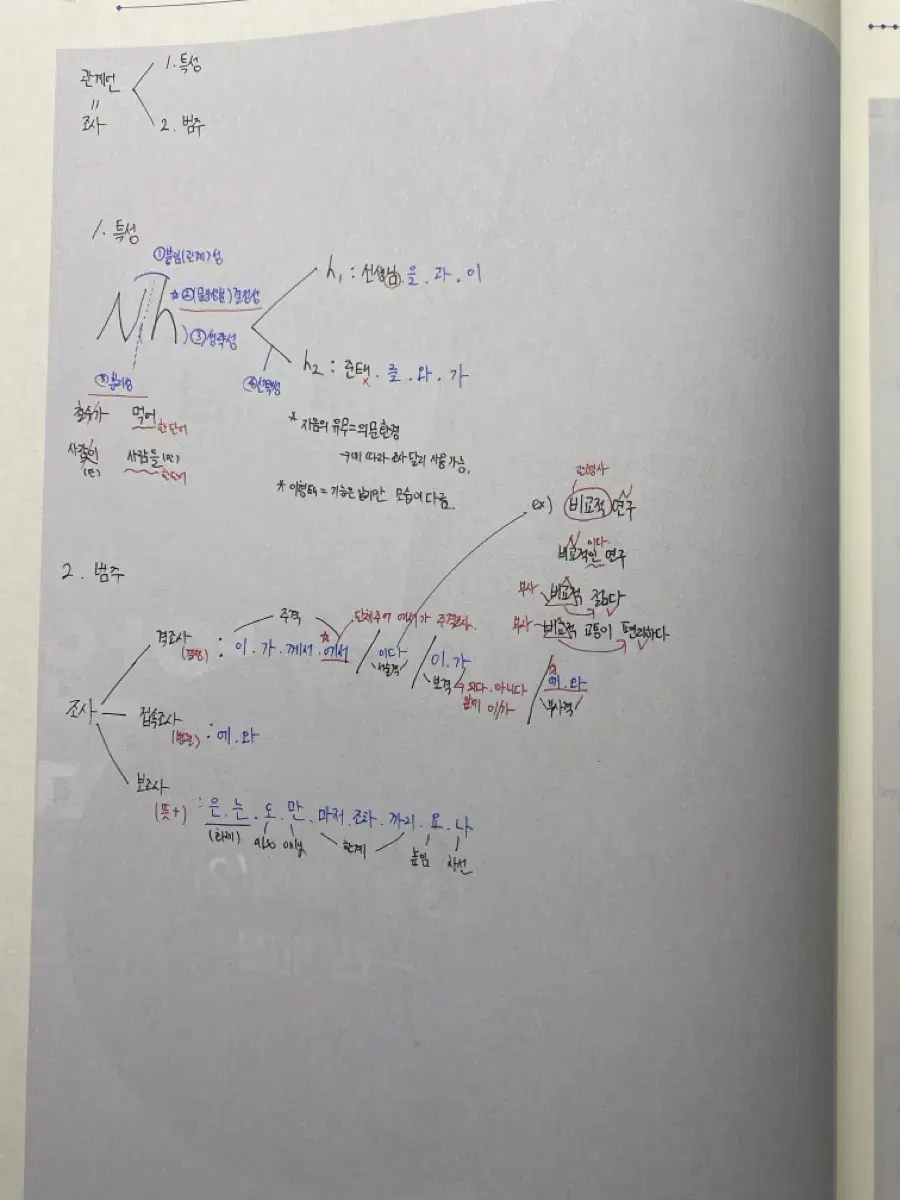 관계언
=
조사
1. 특성
2. 범주
1. 특성
①붙임(관계)성
N h
★②(문장성분)결정성
③생략성
④선택성
⑤분리성
h₁ : 선생님 . 을 . 과 . 이
h₂ : 준태 . 를 . 와 . 가
x
철수가 먹어 한단어
사람이 사람들(편) 한단어
(편)
* 자음의 유무=의문환경
→에 따라 조사 달리 사용 가능.
* 이형태 = 기능은 같지만 모습이 다름.
관형사
ex) 비교적 연구
N 이다
비교적인 연구
부사 비교적 젊다
부사 비교적 교통이 편리하다
2. 범주
조사
격조사
주격
단체주어 에서가 주격조사.
: 이 . 가 . 께서 . 에서 / 이다 / 이 . 가 / 에 . 와
서술격
보격 → 되다 . 아니다
앞에 이/가
부사격
접속조사
: 에 . 와
보조사
(뜻+)
: 은 . 는 . 도 . 만 . 마저 . 조차 . 까지 . 요 . 나
(화제) also only 한계 높임 차선